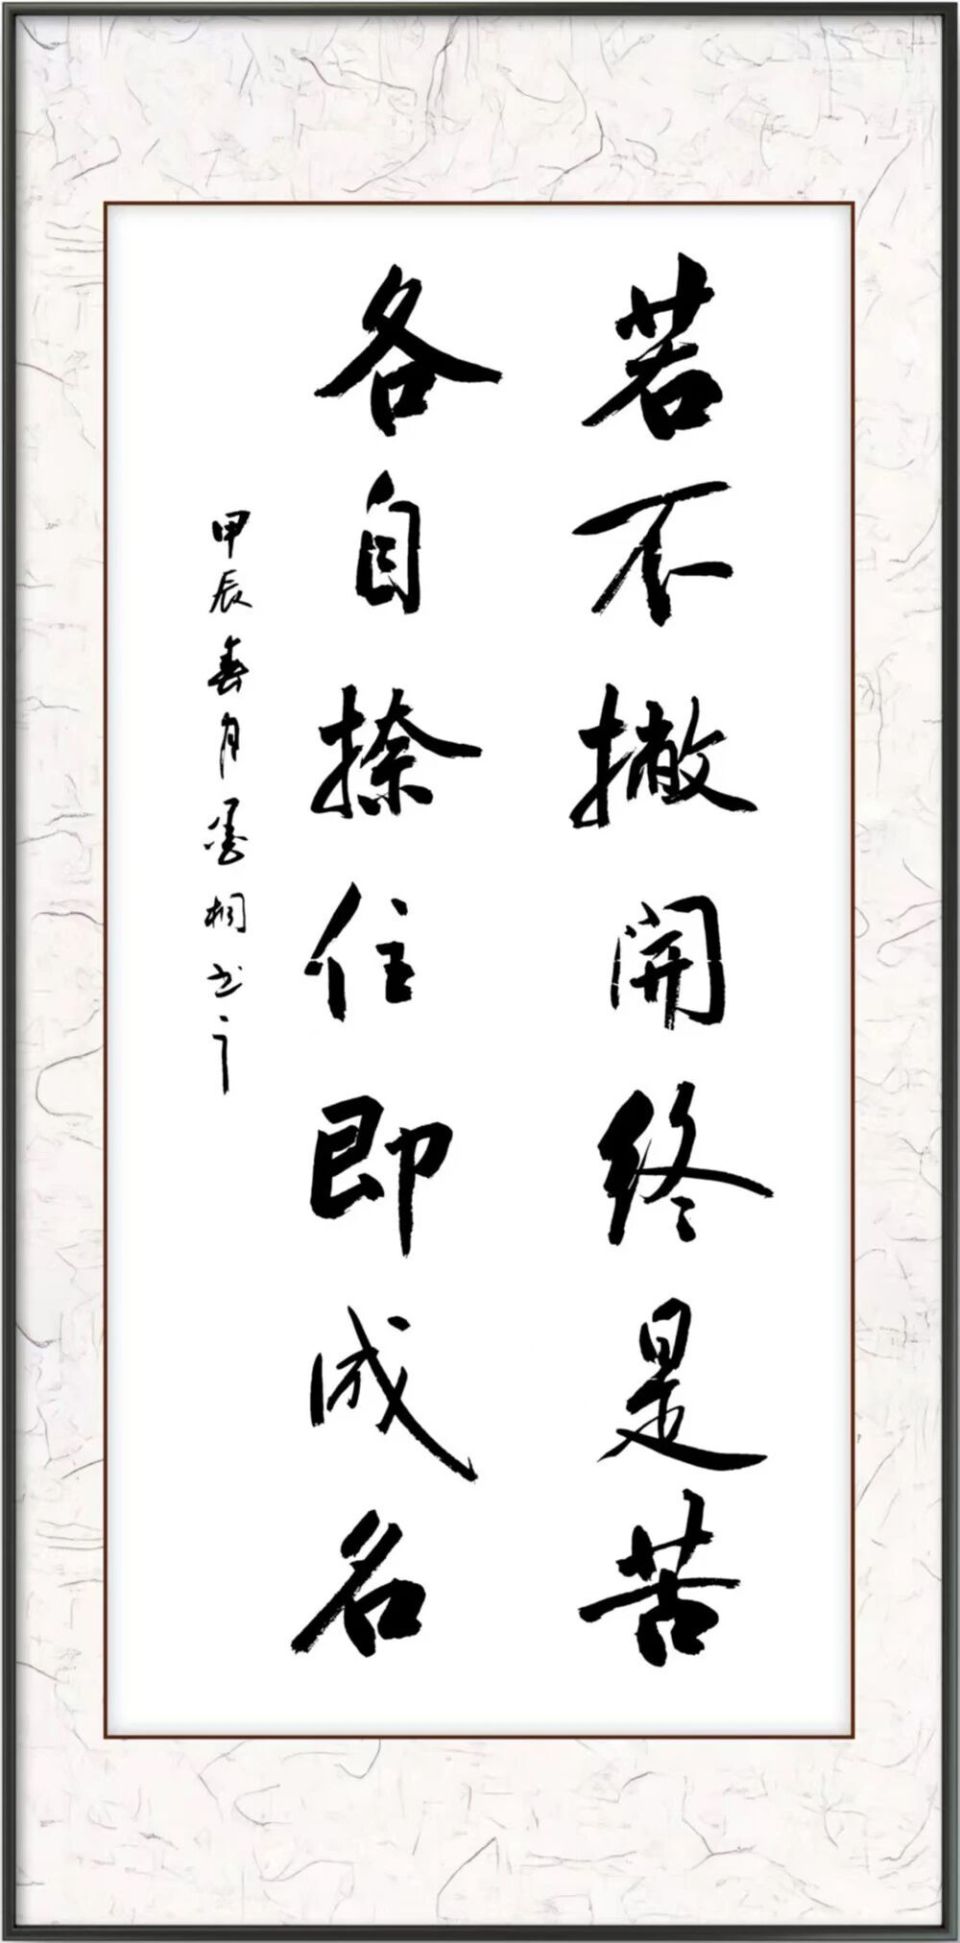 若不撇開终是苦
各自捺住即成名
甲辰春月墨桐书